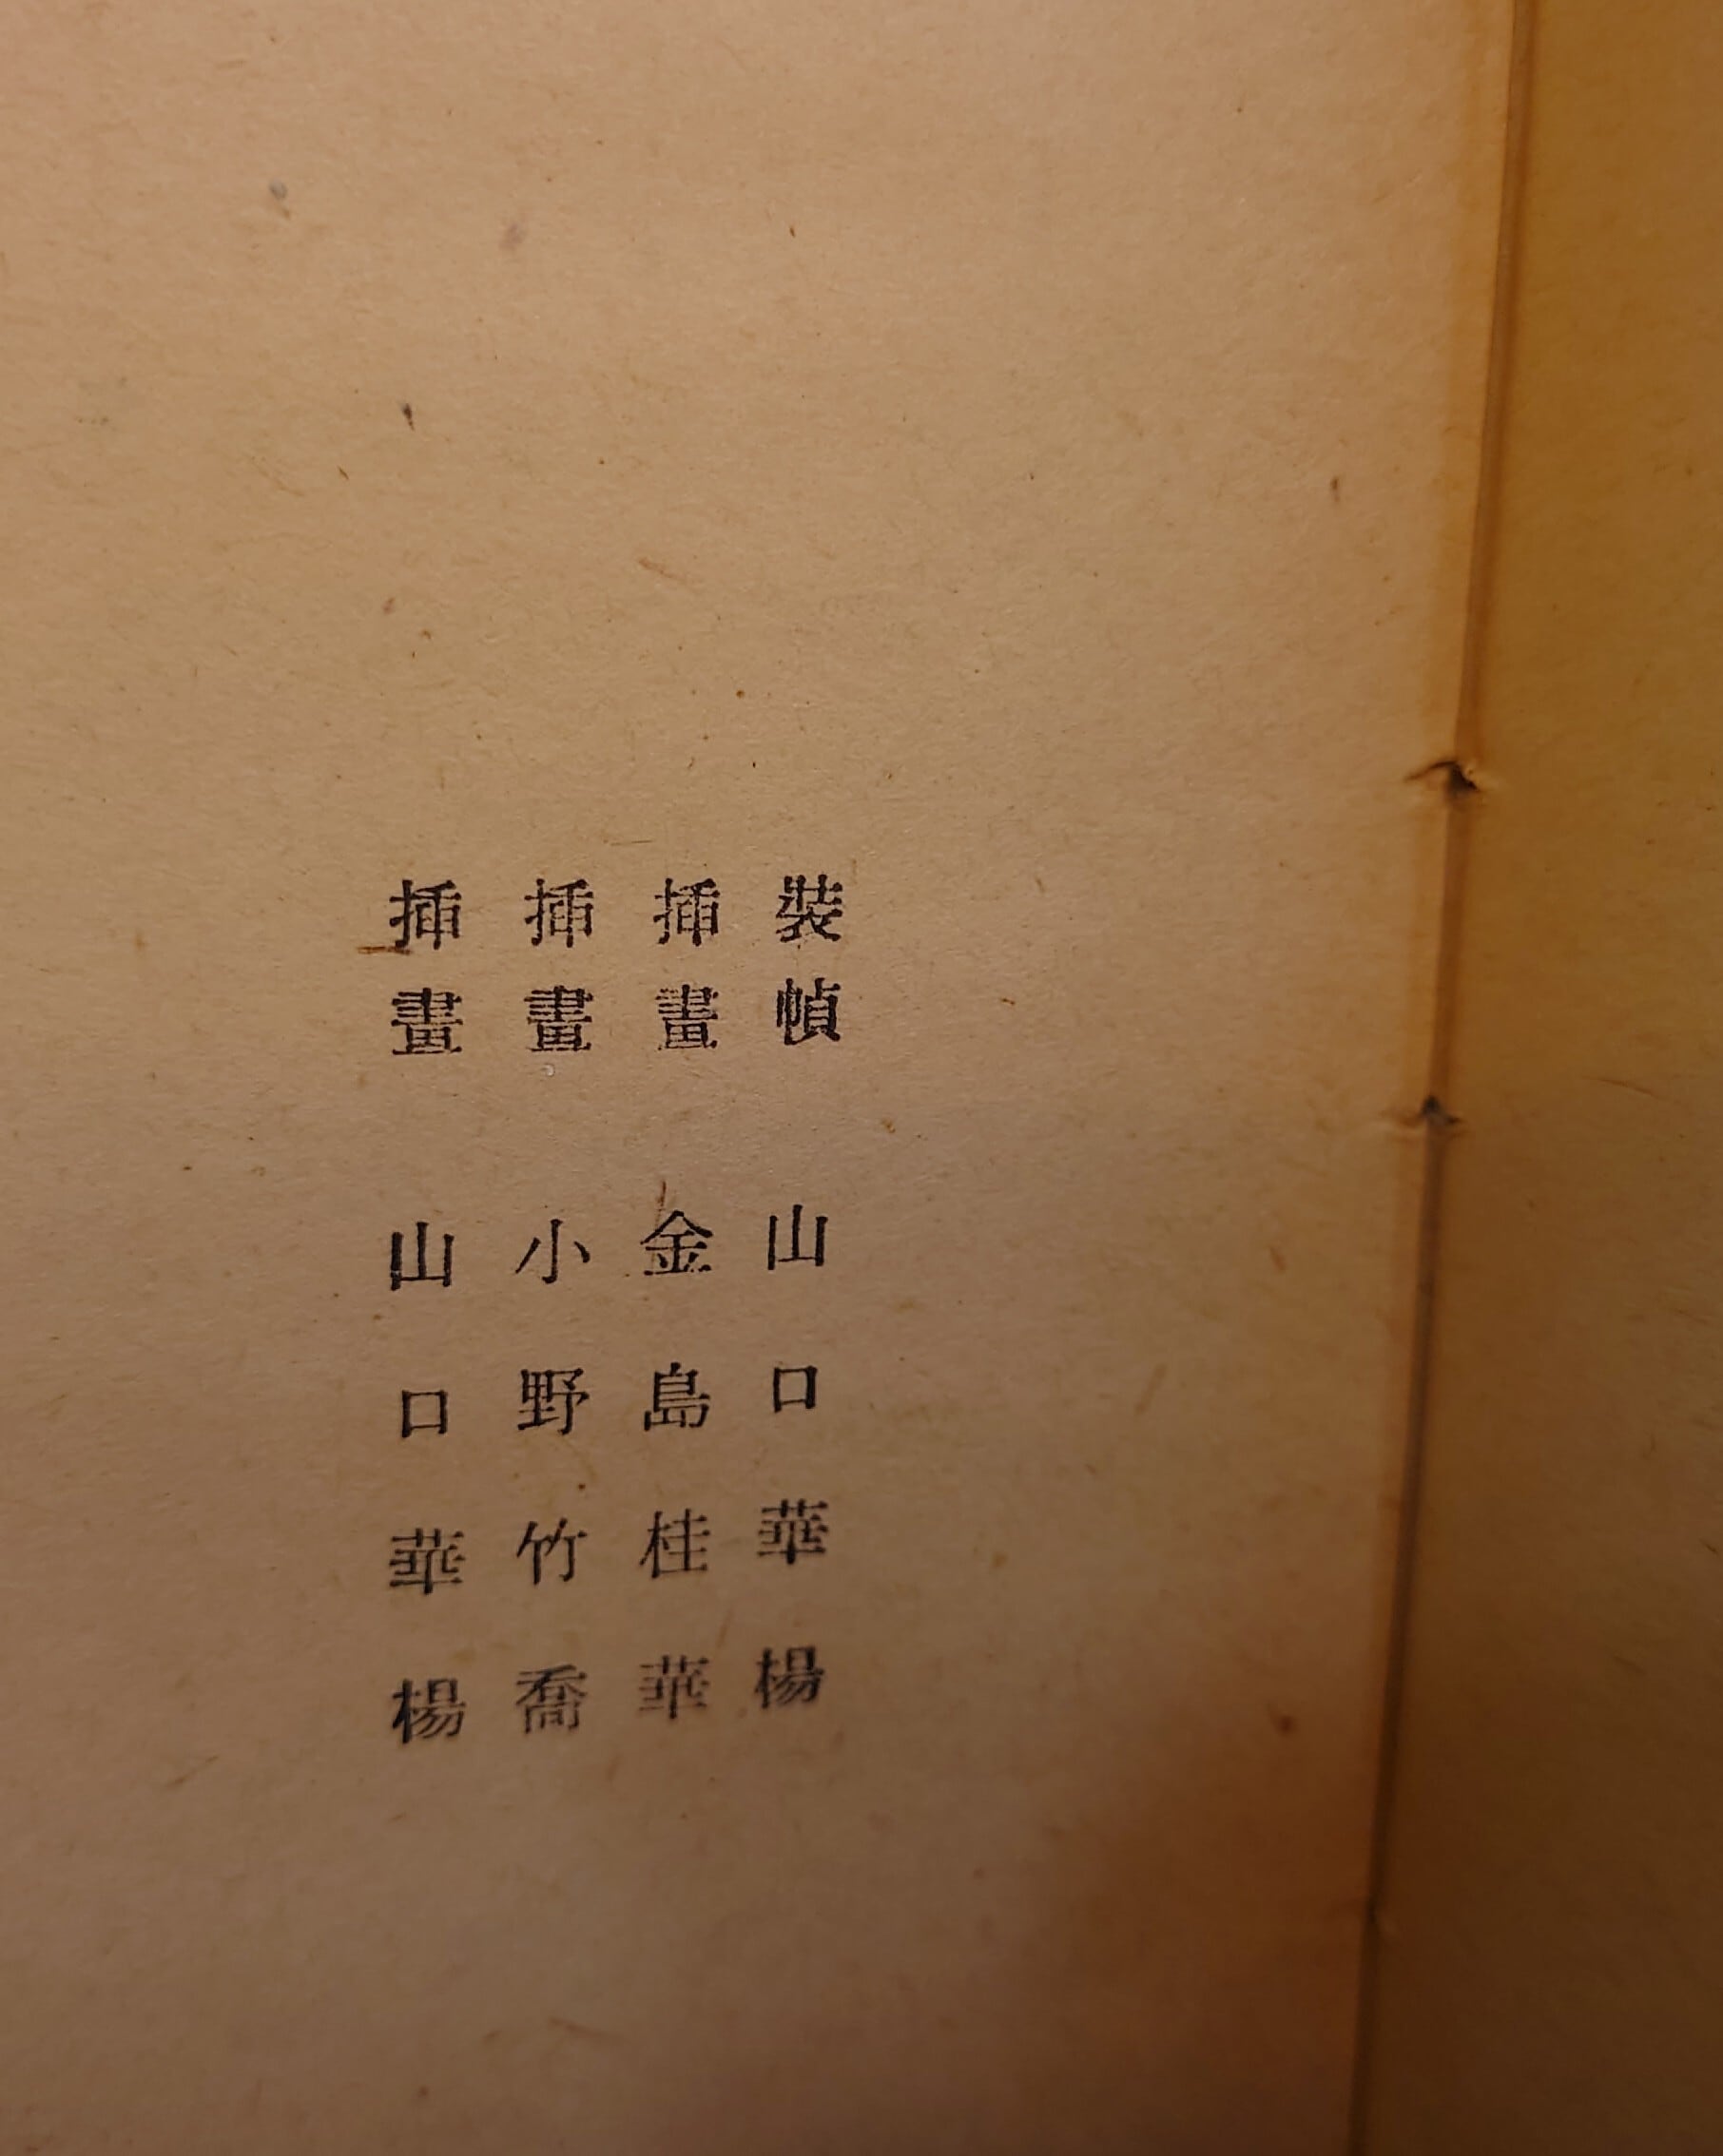 裝幀 山口華楊
揷畫 金島桂華
揷畫 小野竹喬
揷畫 山口華楊